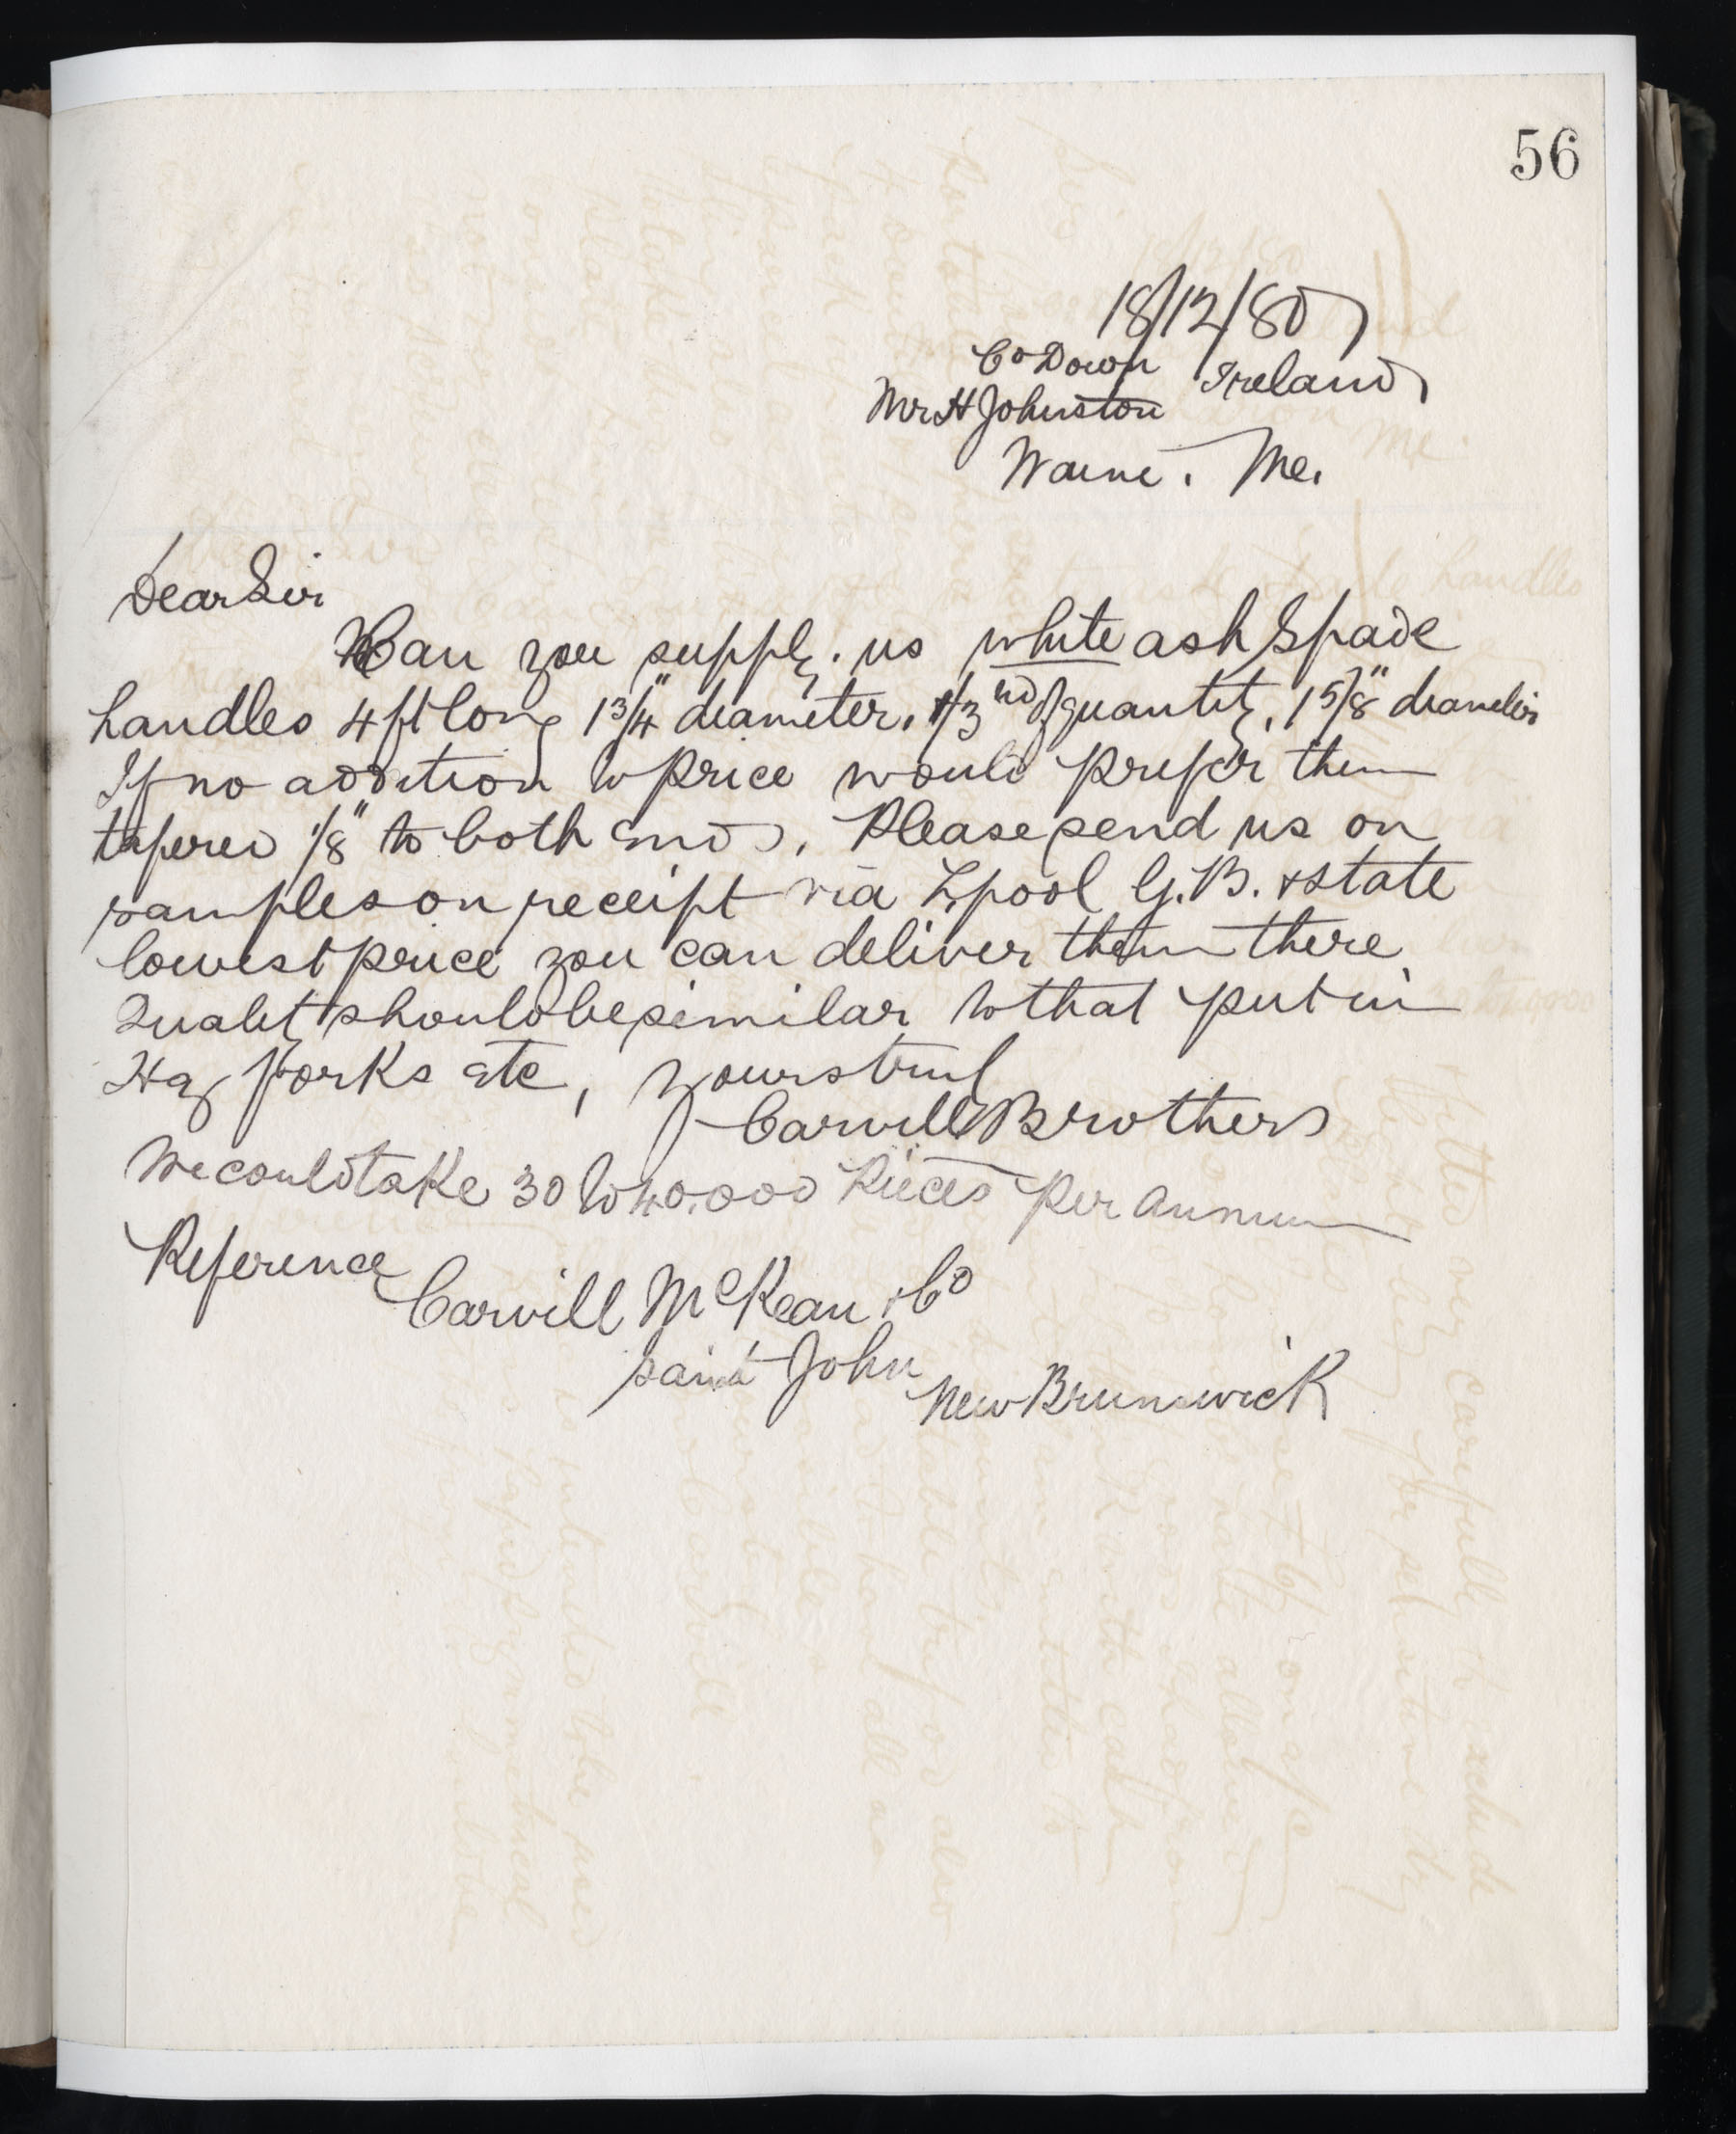 56
18/12/80
Co Down Ireland
Mr H Johnston
Waine. Me.
Dear Sir
Can you supply. us white ash Spade
handles 4 ft long 1 3/4" diameter. 1/3 rd of quantity. 1 5/8" diameter
If no addition to price would prefer them
tapered 1/8" to both ends. Please send us on
samples on receipt via Lpool G.B. & state
lowest price you can deliver them there
Quality should be similar to that put in
Hay forks etc, Yours truly
Carvill Brothers
We could take 30 to 40.000 Pieces per annum
Reference
Carvill McKean & Co
Saint John
New Brunswick